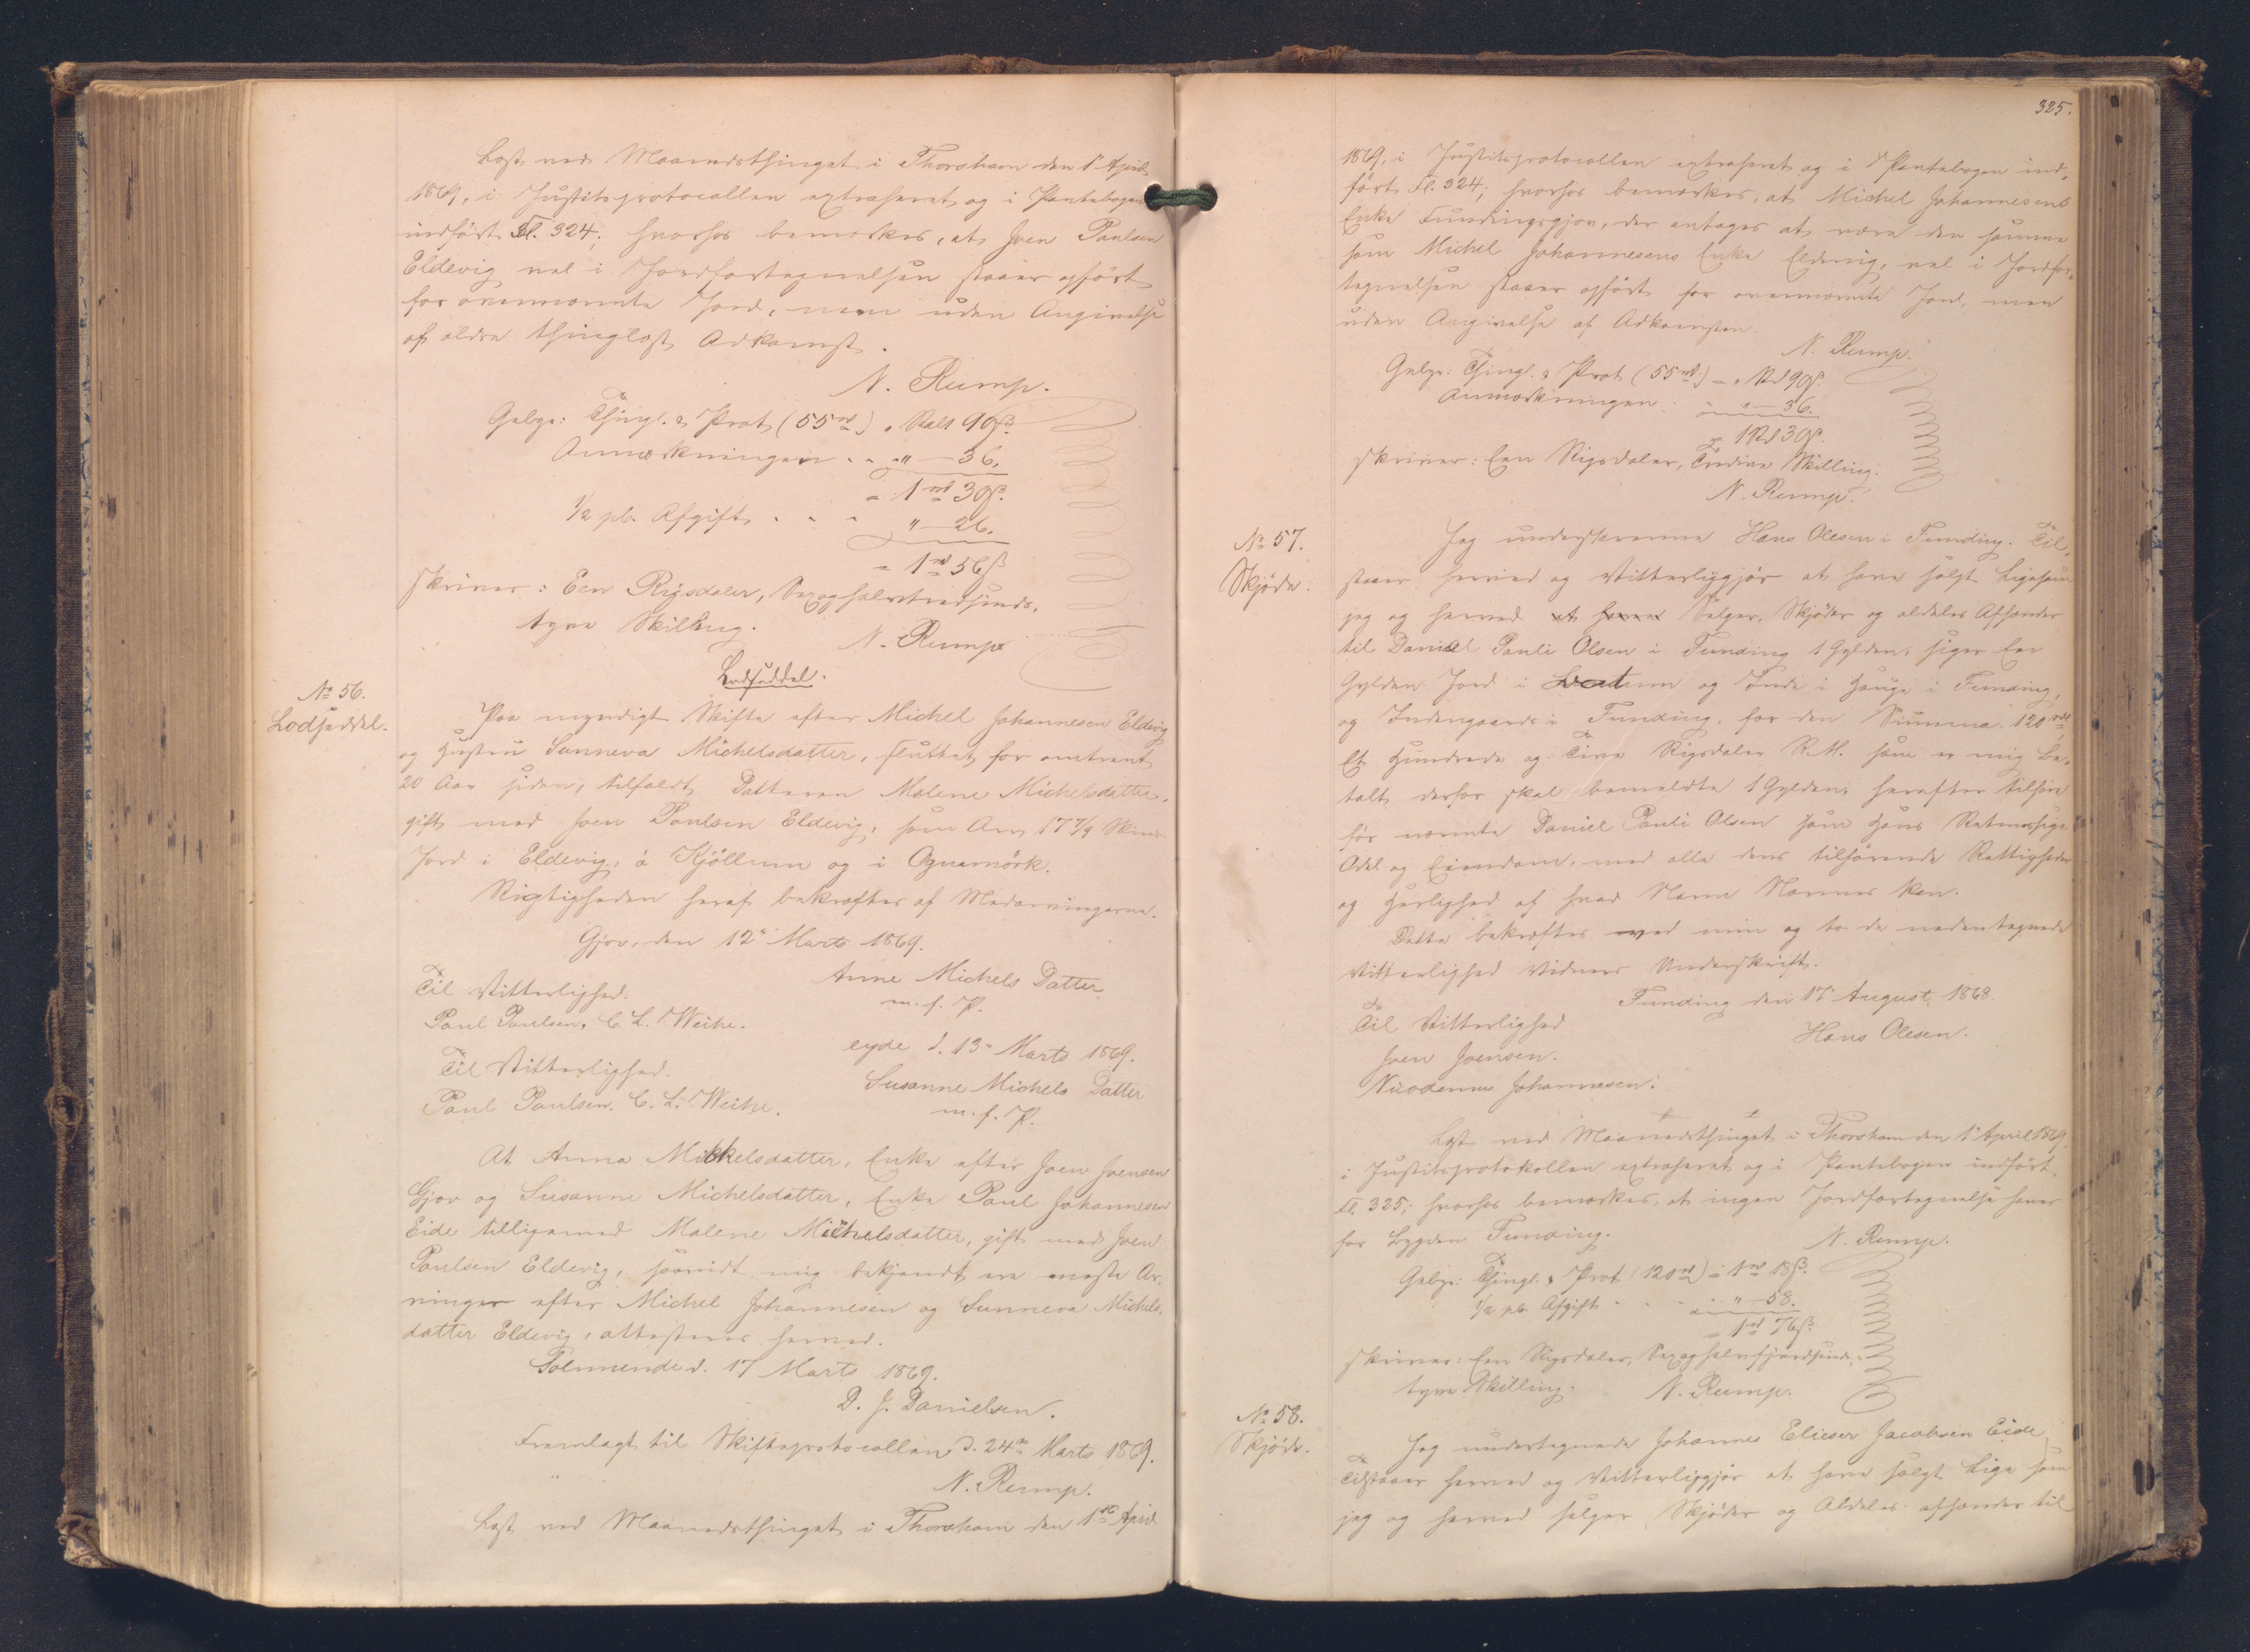 Læst ved Maanedsthinget i Thorshavn den 1 April
1869, i Justitsprotocollen extraheret og i Pantebogen
indført Fl. 324; hvorhos bemærkes, at Joen Paulsen
Eldevig vel i Jordfortegnelsen staaer opført
for ovennævnte Jord, men uden Angivelse
af ældre thinglæst Adkomst.
N. Rump.
Gebyr: Thingl. & Prot (55 rd) " Rdlr 90 ß.
Anmærkningen . . " — 36.
= 1 rd 30 ß.
1/2 pCt. Afgift . . . " — 26.
= 1 rd 56 ß
skriver: Een Rigsdaler, Sexoghalvtredsinds-
tyve Skilling.
N. Rump
No 56.
Lodseddel.
Lodseddel.
Paa myndigt Skifte efter Michel Johannesen Eldevig
og Hustru Sunneva Michelsdatter, sluttet for omtrent
20 Aar siden, tilfaldt Datteren Malene Michelsdatter,
gift med Joen Paulsen Eldevig, som Arv 17 7/9 Skind
Jord i Eldevig, á Kjöllum og i Ognamörk.
Rigtigheden heraf bekræftes af Medarvingerne.
Gjov, den 12 Marts 1869.
Til Vitterlighed: Anne Michels Datter
m. f. P.
Paul Paulsen. C. L. Weihe.
eyde d. 13 Marts 1869.
Til Vitterlighed. Susanne Michels Datter
Paul Paulsen. C. L. Weihe. m. f. P.
At Anna Mikkelsdatter, Enke efter Joen Joensen
Gjov og Susanne Michelsdatter, Enke Paul Johannesen
Eide tilligemed Malene Michelsdatter, gift med Joen
Paulsen Eldevig, saavidt mig bekjendt ere eneste Ar-
vinger efter Michel Johannesen og Sunneva Michels-
datter Eldevig, attesteres herved.
Solmunde d. 17 Marts 1869.
D. J. Danielsen.
Fremlagt til Skifteprotocollen d. 24de Marts 1869.
N. Rump.
Læst ved Maanedsthinget i Thorshavn den 1ste April
325.
1869, i Justitsprotocollen extraheret og i Pantebogen ind-
ført Fl. 324; hvorhos bemærkes, at Michel Johannesens
Enke Fundingsgjov, der antages at være den samme
som Michel Johannesens Enke Eldevig, vel i Jordfor-
tegnelsen staaer opført for ovennævnte Jord, men
uden Angivelse af Adkomsten.
N. Rump.
Gebyr: Thingl. & Prot (55 rd) = " Rd 90 ß.
Anmærkningen . . " — 36.
1 Rd 30 ß.
skriver: Een Rigsdaler, Tredive Skilling.
N. Rump.
No 57.
Skjöde.
Jeg underskrevne Hans Olesen i Funding. Til-
staaer herved og Vitterliggjør at have solgt Ligesom
jeg og herved at have Sælger, Skjöder og aldeles Afhænder
til Daniel Pauli Olsen i Funding 1 Gylden, siger Een
Gylden Jord i og Inde i Hauge i Funding,
og Indengaards i Funding. for den Summa 120 rd,
Et Hundrede og Tive Rigsdaler R.M. som er mig Be-
talt, derfor skal bemeldte 1 Gylden, herefter tilhøre
før nævnte Daniel Pauli Olsen som Hans Retmæssige
Odel og Eiendom, med alle dens tilhørende Rettigheder
og Herlighed af hvad Navn Nævnes kan.
Dette bekræftes ved min og to de nedentegnede
Vitterlighed Vidners Underskrift.
Funding den 17 August 1868
Til Vitterlighed Hans Olesen.
Joen Joensen.
Nicodemus Johannesen.
Læst ved Maanedsthinget i Thorshavn den 1 April 1869,
i Justitsprotokollen extraheret og i Pantebogen indført
Fl. 325; hvorhos bemærkes, at ingen Jordfortegnelse haves
for Bygden Funding.
N. Rump.
Gebyr: Thingl. & Prot (120 rd) = 1 rd 18 ß.
1/2 pCt. Afgift . . . " — 58.
= 1 rd 76 ß.
skriver: Een Rigsdaler, Sexoghalvfjerdsinds-
tyve Skilling. N. Rump.
No 58.
Skjöde.
Jeg undertegnede Johannes Elieser Jacobsen Eide
tilstaaer herved og Vitterliggjør at have solgt Lige som
jeg og herved sælger Skjöder og Aldeles afhænder til